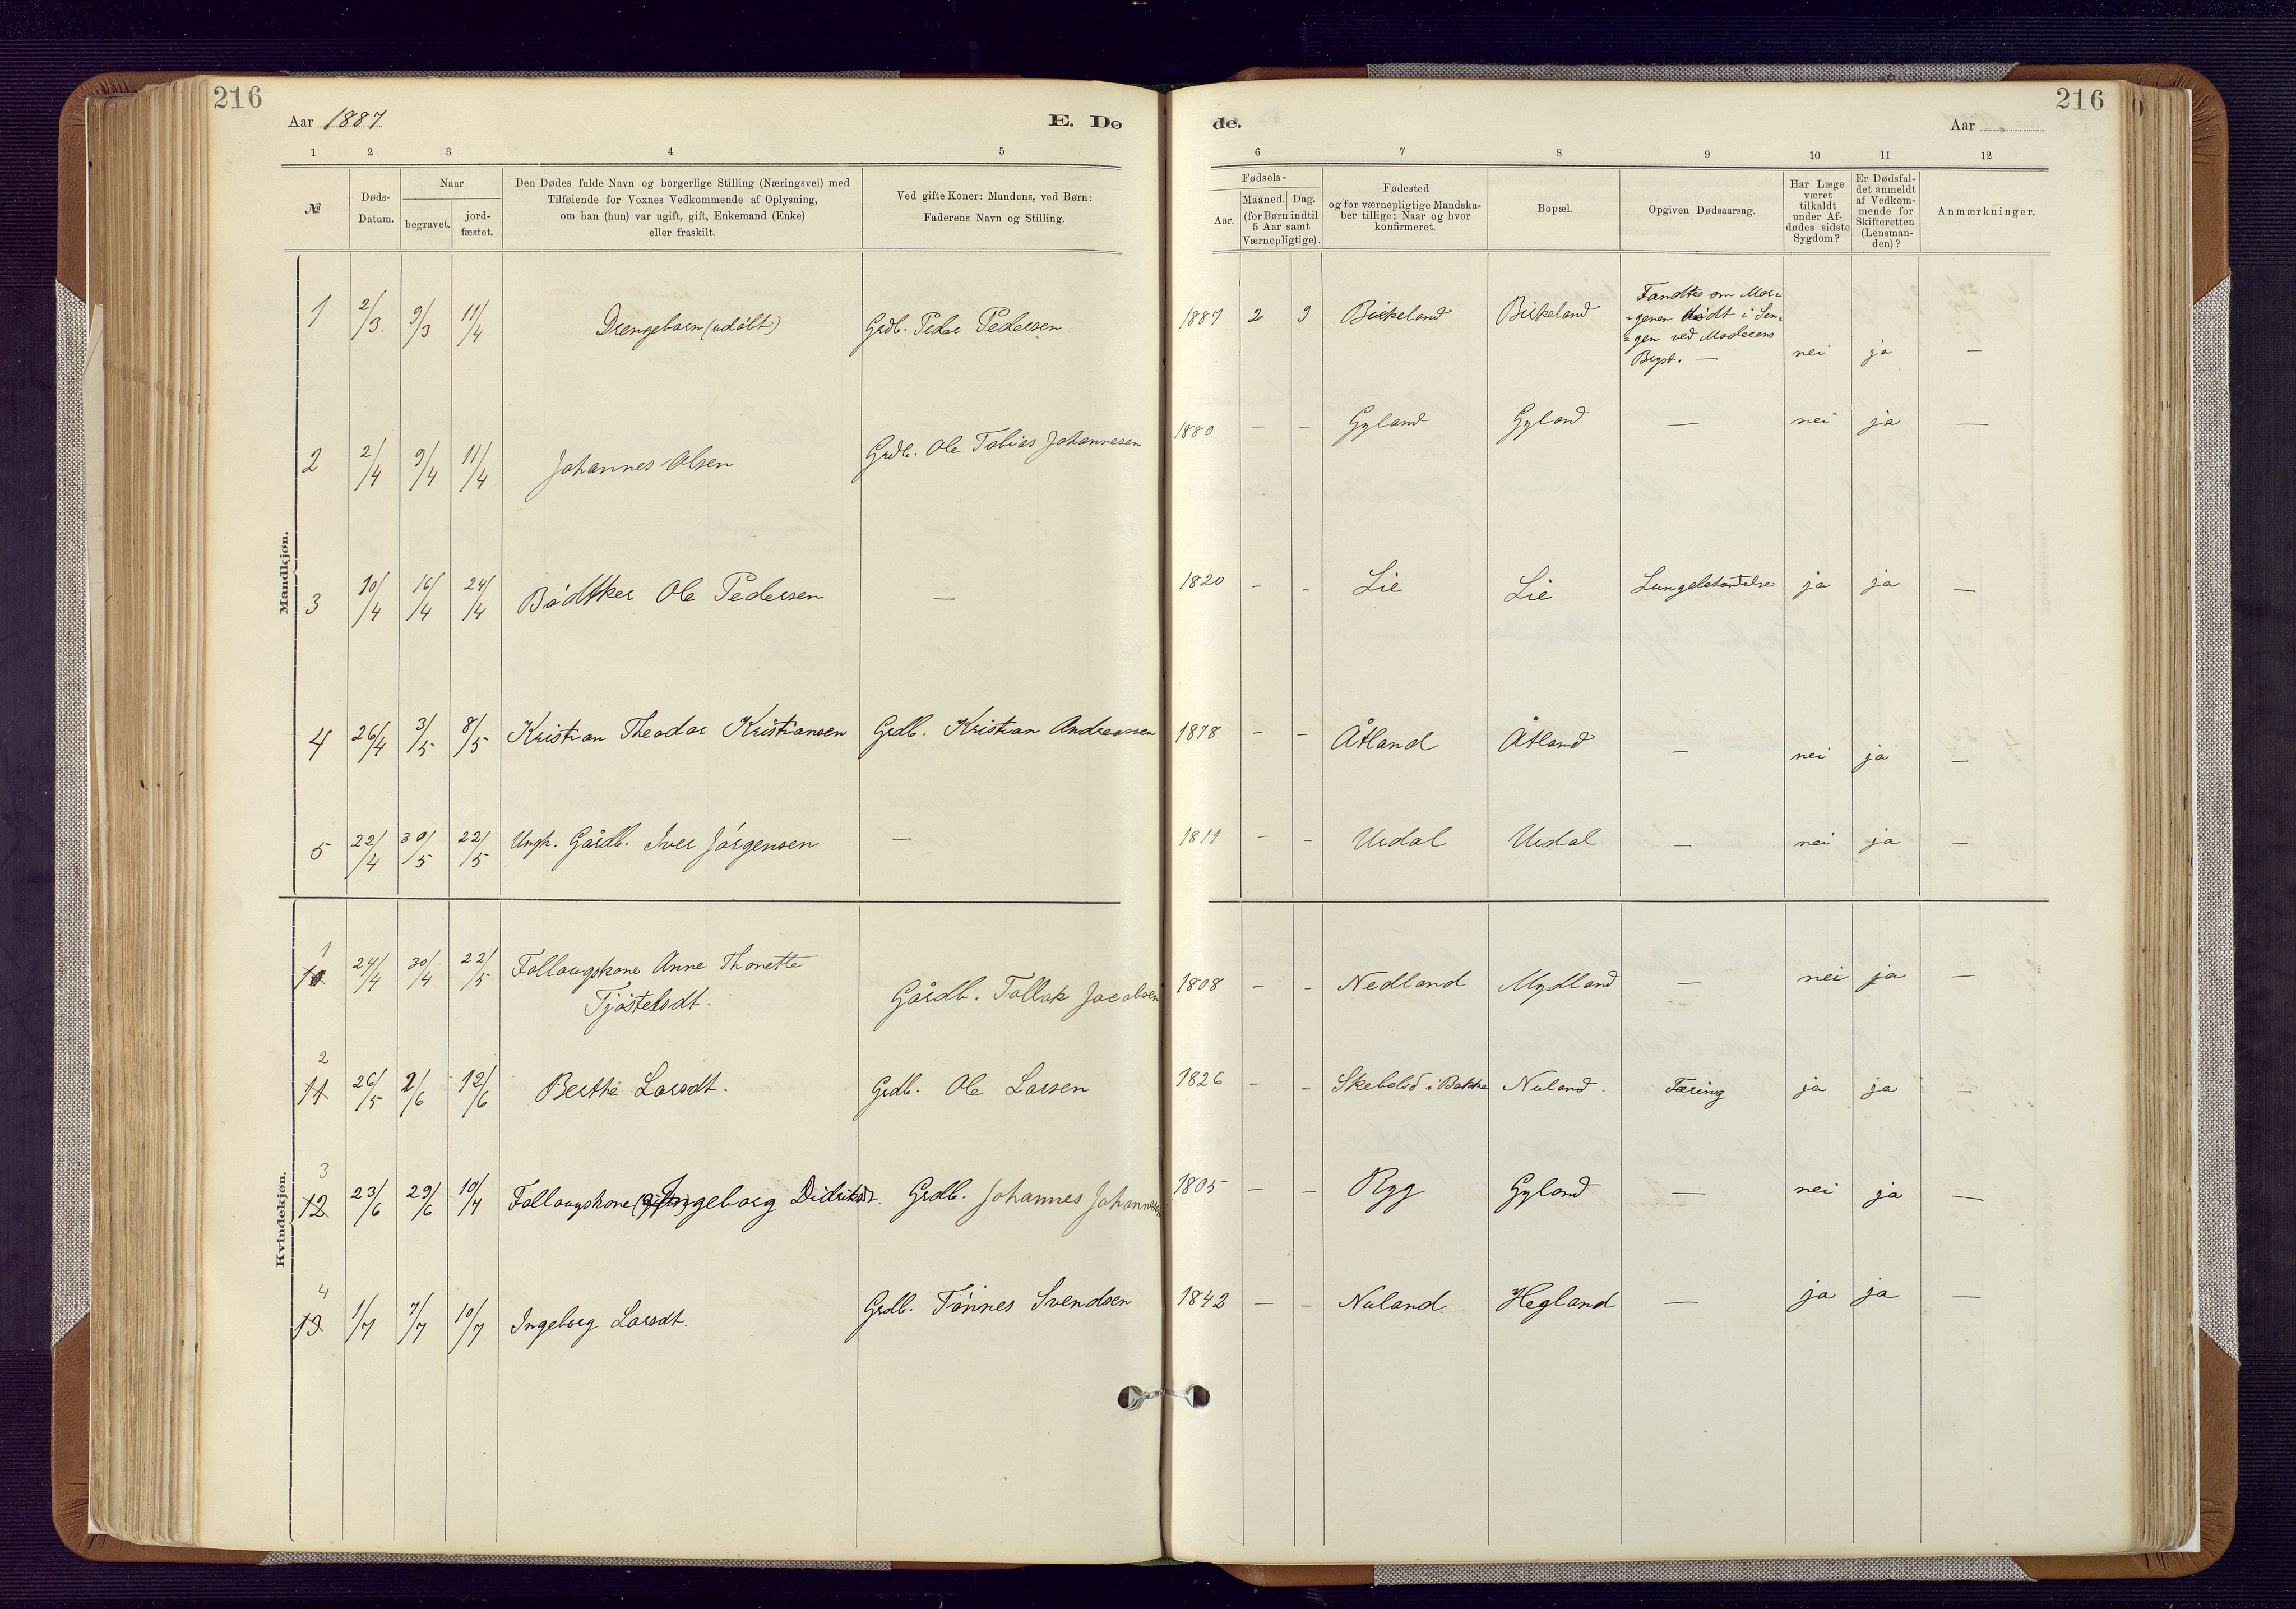 216
216
Aar 1887
E. Dø
de.
Aar
1 2 3 4 5 6 7 8 9 10 11 12
№
Døds-
Datum.
Naar
begravet.
jord-
fæstet.
Den Dødes fulde Navn og borgerlige Stilling (Næringsvei) med
Tilføiende for Voxnes Vedkommende af Oplysning,
om han (hun) var ugift, gift, Enkemand (Enke)
eller fraskilt.
Ved gifte Koner: Mandens, ved Børn:
Faderens Navn og Stilling.
Fødsels-
Aar.
Maaned. Dag.
(for Børn indtil
5 Aar samt
Værnepligtige).
Fødested
og for værnepligtige Mandska-
ber tillige: Naar og hvor
konfirmeret.
Bopæl.
Opgiven Dødsaarsag.
Har Læge
været
tilkaldt
under Af-
dødes sidste
Sygdom?
Er Dødsfal-
det anmeldt
af Vedkom-
mende for
Skifteretten
(Lensman-
den)?
Anmærkninger.
Mandkjøn.
1 2/3. 9/3 11/4 Drengebarn (udöbt) Grdb. Peder Pedersen 1887 2 9 Birkeland Birkeland
Fandtes om Mor-
-genen dödt i Sen-
-gen ved Moderens
Bryst. — nei ja —
2 2/4 9/4 11/4 Johannes Olsen Grdb. Ole Tobias Johannesen 1880 — – Gyland Gyland — nei ja —
3 10/4 16/4 24/4 Bödtker Ole Pedersen — 1820 – – Lie Lie Lungebetændelse ja ja —
4 26/4 3/5 8/5 Kristian Theodor Kristiansen Grdb. Kristian Andreassen 1878 – – Åtland Åtland — nei ja —
5 22/4 30/5 22/5 Ungk. Gårdb. Iver Jörgensen — 1811 – – Urdal Urdal — nei ja —
Kvindekjøn.
1
10 24/4 30/4 22/5 Follougskone Anne Thonette
Tjöstelsdt. Gårdb. Tollak Jacobsen 1808 – – Nedland Mydland — nei ja —
2
11 26/5 2/6 12/6 Berthe Larsdt. Grdb. Ole Larsen 1826 – – Skebelid i Bakke Nuland. Tæring ja ja —
3
12 23/6 29/6 10/7 Follougskone Ingeborg Didriksdt. Grdb. Johannes Johannesen 1805 — — Ryg Gyland — nei ja —
4
13 1/7 7/7 10/7 Ingeborg Larsdt. Grdb. Tönnes Svendsen 1842 — – Nuland Hegland — ja ja —